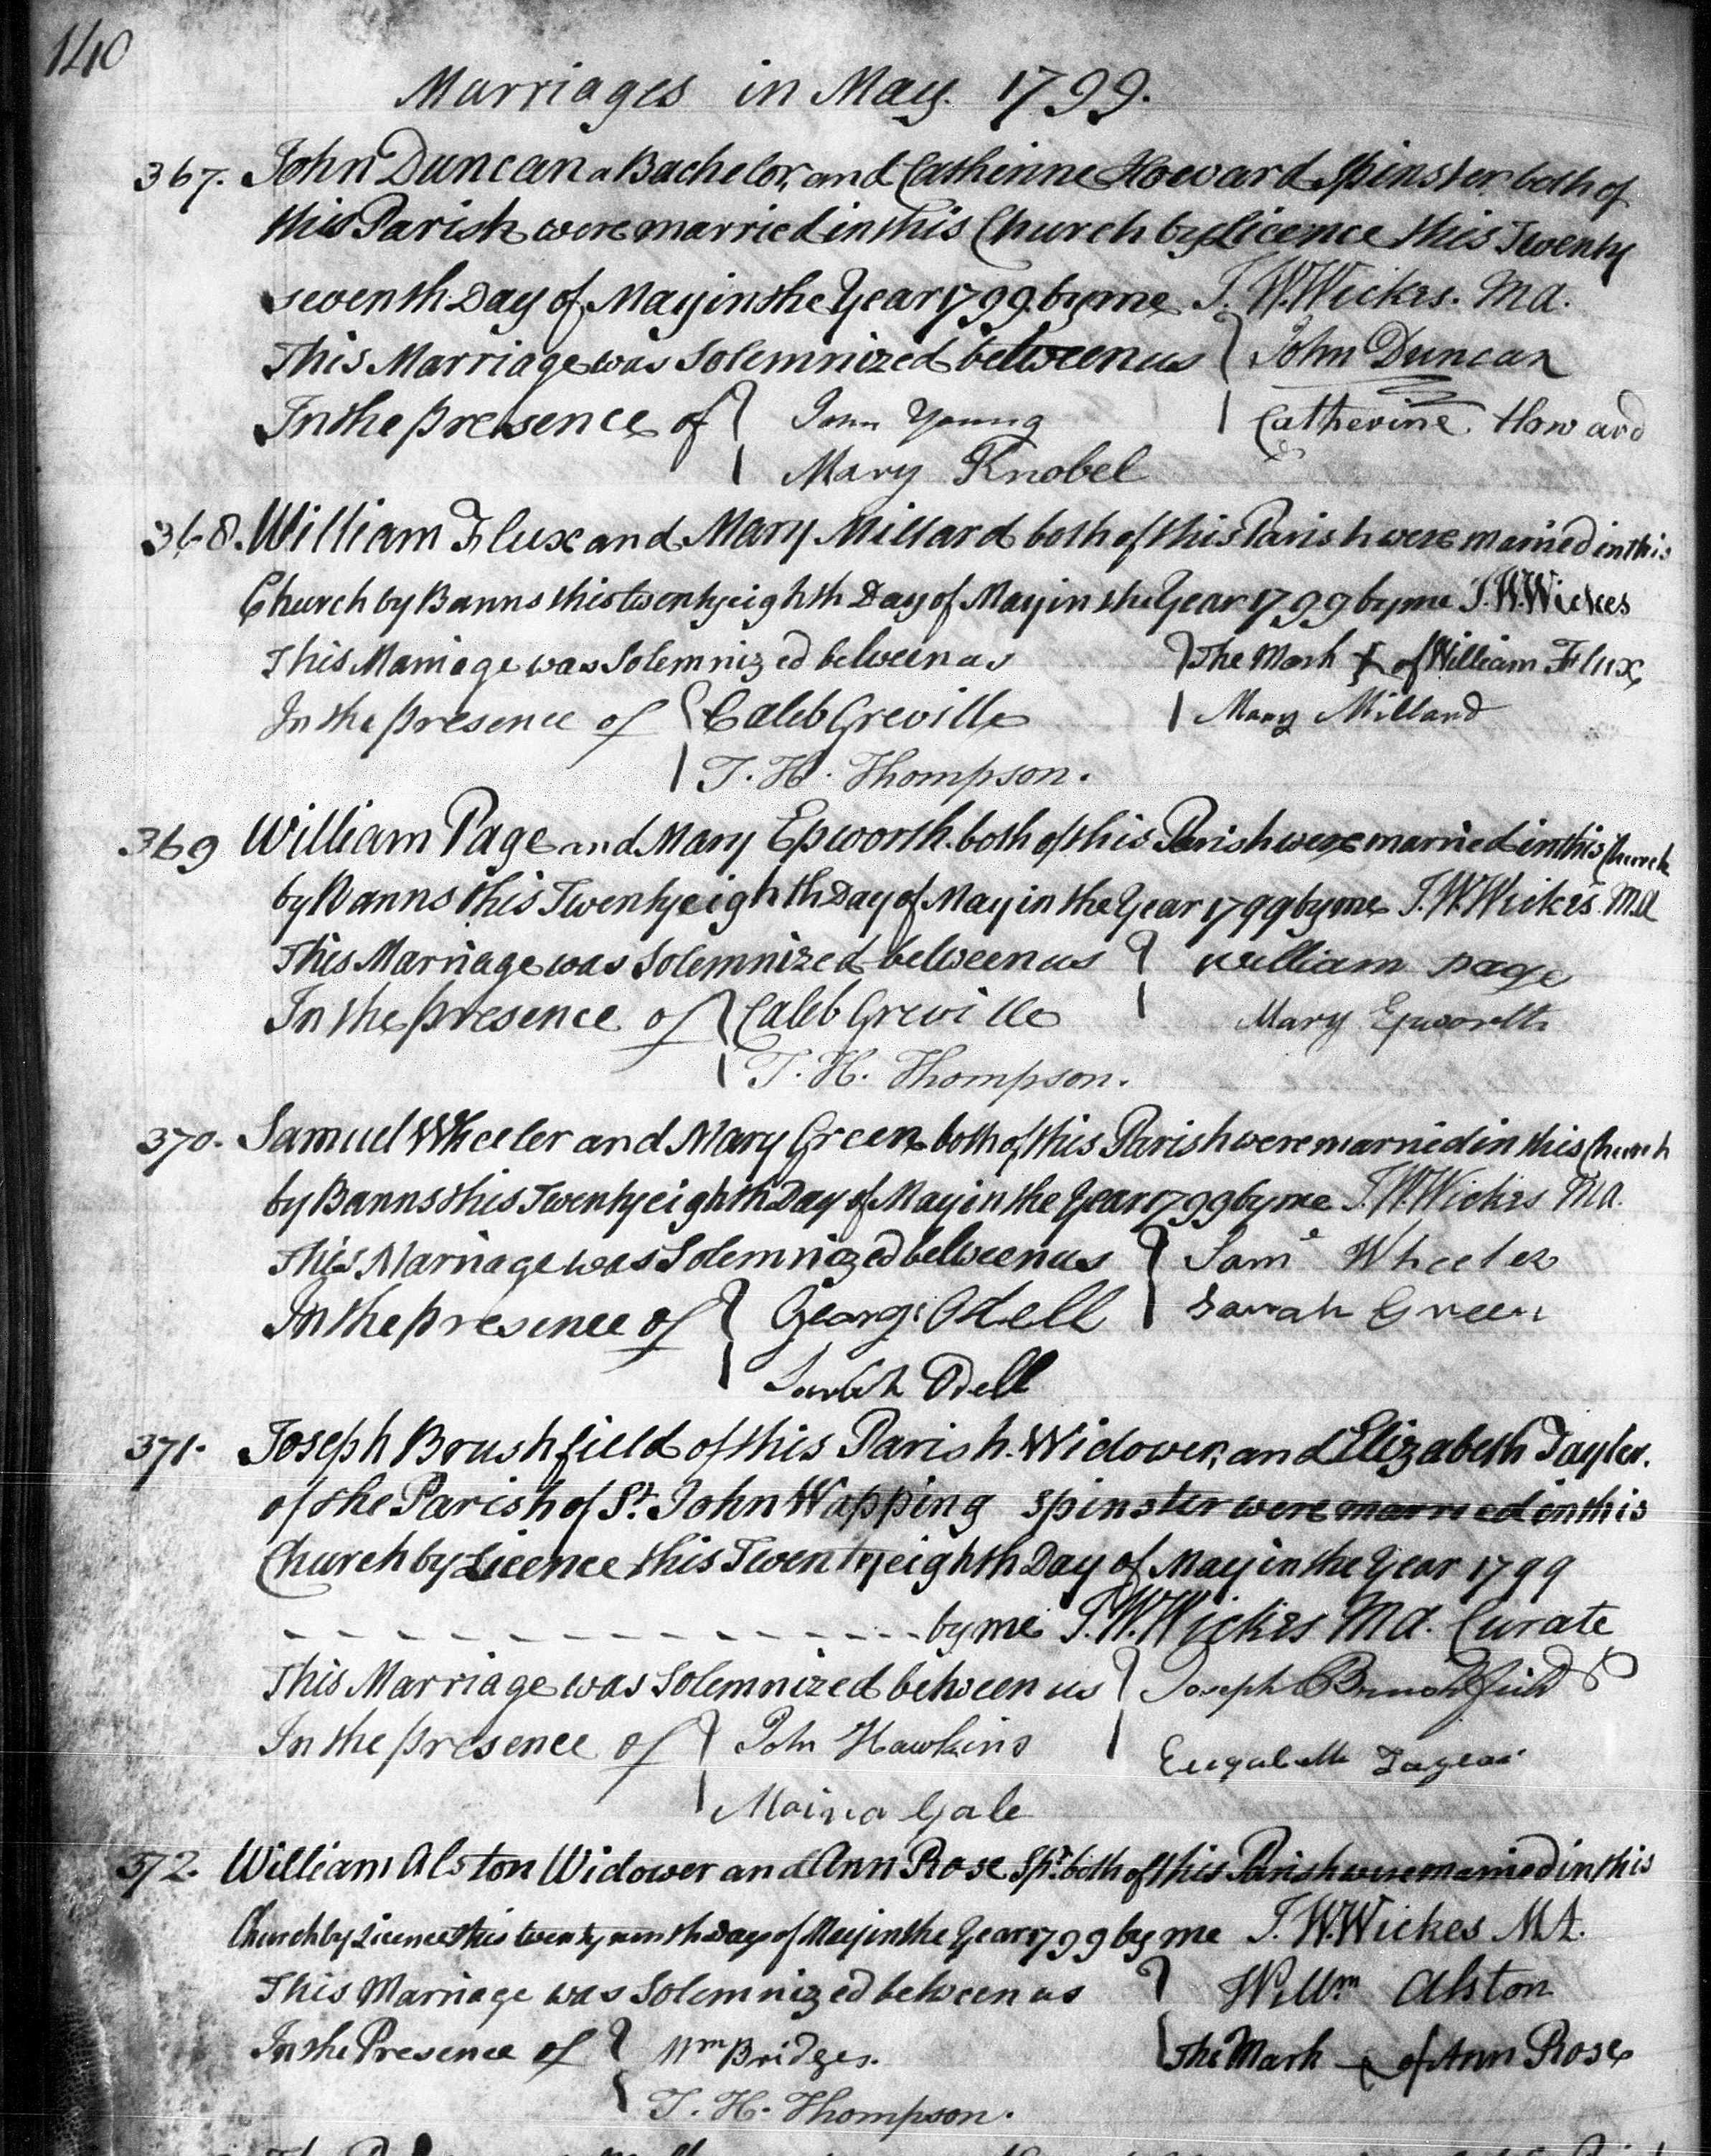 140
Marriages in May. 1799.
367. John Duncan a Bachelor, and Catherine Howard Spinster both of
this Parish were married in this Church by Licence this Twenty
seventh Day of May in the Year 1799 by me T. W. Wickes. MA.
This Marriage was Solemnized between us John Duncan
In the presence of John Young Catherine Howard
Mary Knobel
368. William Flux and Mary Millard both of this Parish were married in this
Church by Banns this twenty eighth Day of May in the Year 1799 by me T. W. Wickes
This Marriage was Solemnized between us The Mark X of William Flux
In the presence of Caleb Greville Mary Millard
T. H. Thompson.
369 William Page and Mary Epworth both of this Parish were married in this Church
by Banns this Twenty eighth Day of May in the Year 1799 by me T. W. Wickes. MA
This Marriage was Solemnized between us william page
In the presence of Caleb Greville Mary Epworth
T. H. Thompson.
370. Samuel Wheeler and Mary Green both of this Parish were married in this Church
by Banns this Twenty eighth Day of May in the Year 1799 by me T. W. Wickes MA.
This Marriage was Solemnized between us Saml Wheeler
In the presence of George Odell Sarah Green
Sarah Odell
371. Joseph Brushfield of this Parish Widower, and Elizabeth Tayler.
of the Parish of St. John Wapping Spinster were married in this
Church by Licence this Twenty eighth Day of May in the Year 1799
by me T. W. Wickes MA. Curate
This Marriage was Solemnized between us Joseph Brushfield
In the presence of John Hawkins Elizabeth
Gale
372. William Alston Widower and Ann Rose Spr. both of this Parish were married in this
Church by Licence this twenty ninth Day of May in the Year 1799 by me T. W. Wickes M.A.
This Marriage was Solemnized between us Willm Alston
In the Presence of Wm Bridges. The Mark X of Ann Rose
T. H. Thompson.